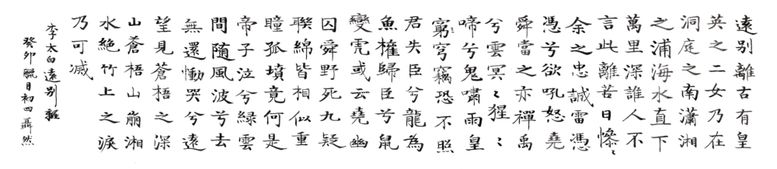 遠別離古有皇
英之二女乃在
洞庭之南瀟湘
之浦海水直下
萬里深誰人不
言此離苦日慘〻
余之忠誠雷憑
憑兮欲吼怒堯
舜當之亦禪禹
兮雲冥〻猩〻
啼兮鬼嘯雨皇
窮穹竊恐不照
君失臣兮龍為
魚權歸臣兮鼠
變虎或云堯幽
囚舜野死九疑
聯綿皆相似重
瞳孤墳竟何是
帝子泣兮綠雲
間隨風波兮去
無還慟哭兮遠
望見蒼梧之深
山蒼梧山崩湘
水絕竹上之淚
乃可滅
李太白遠別離
癸卯臘月初四聶然